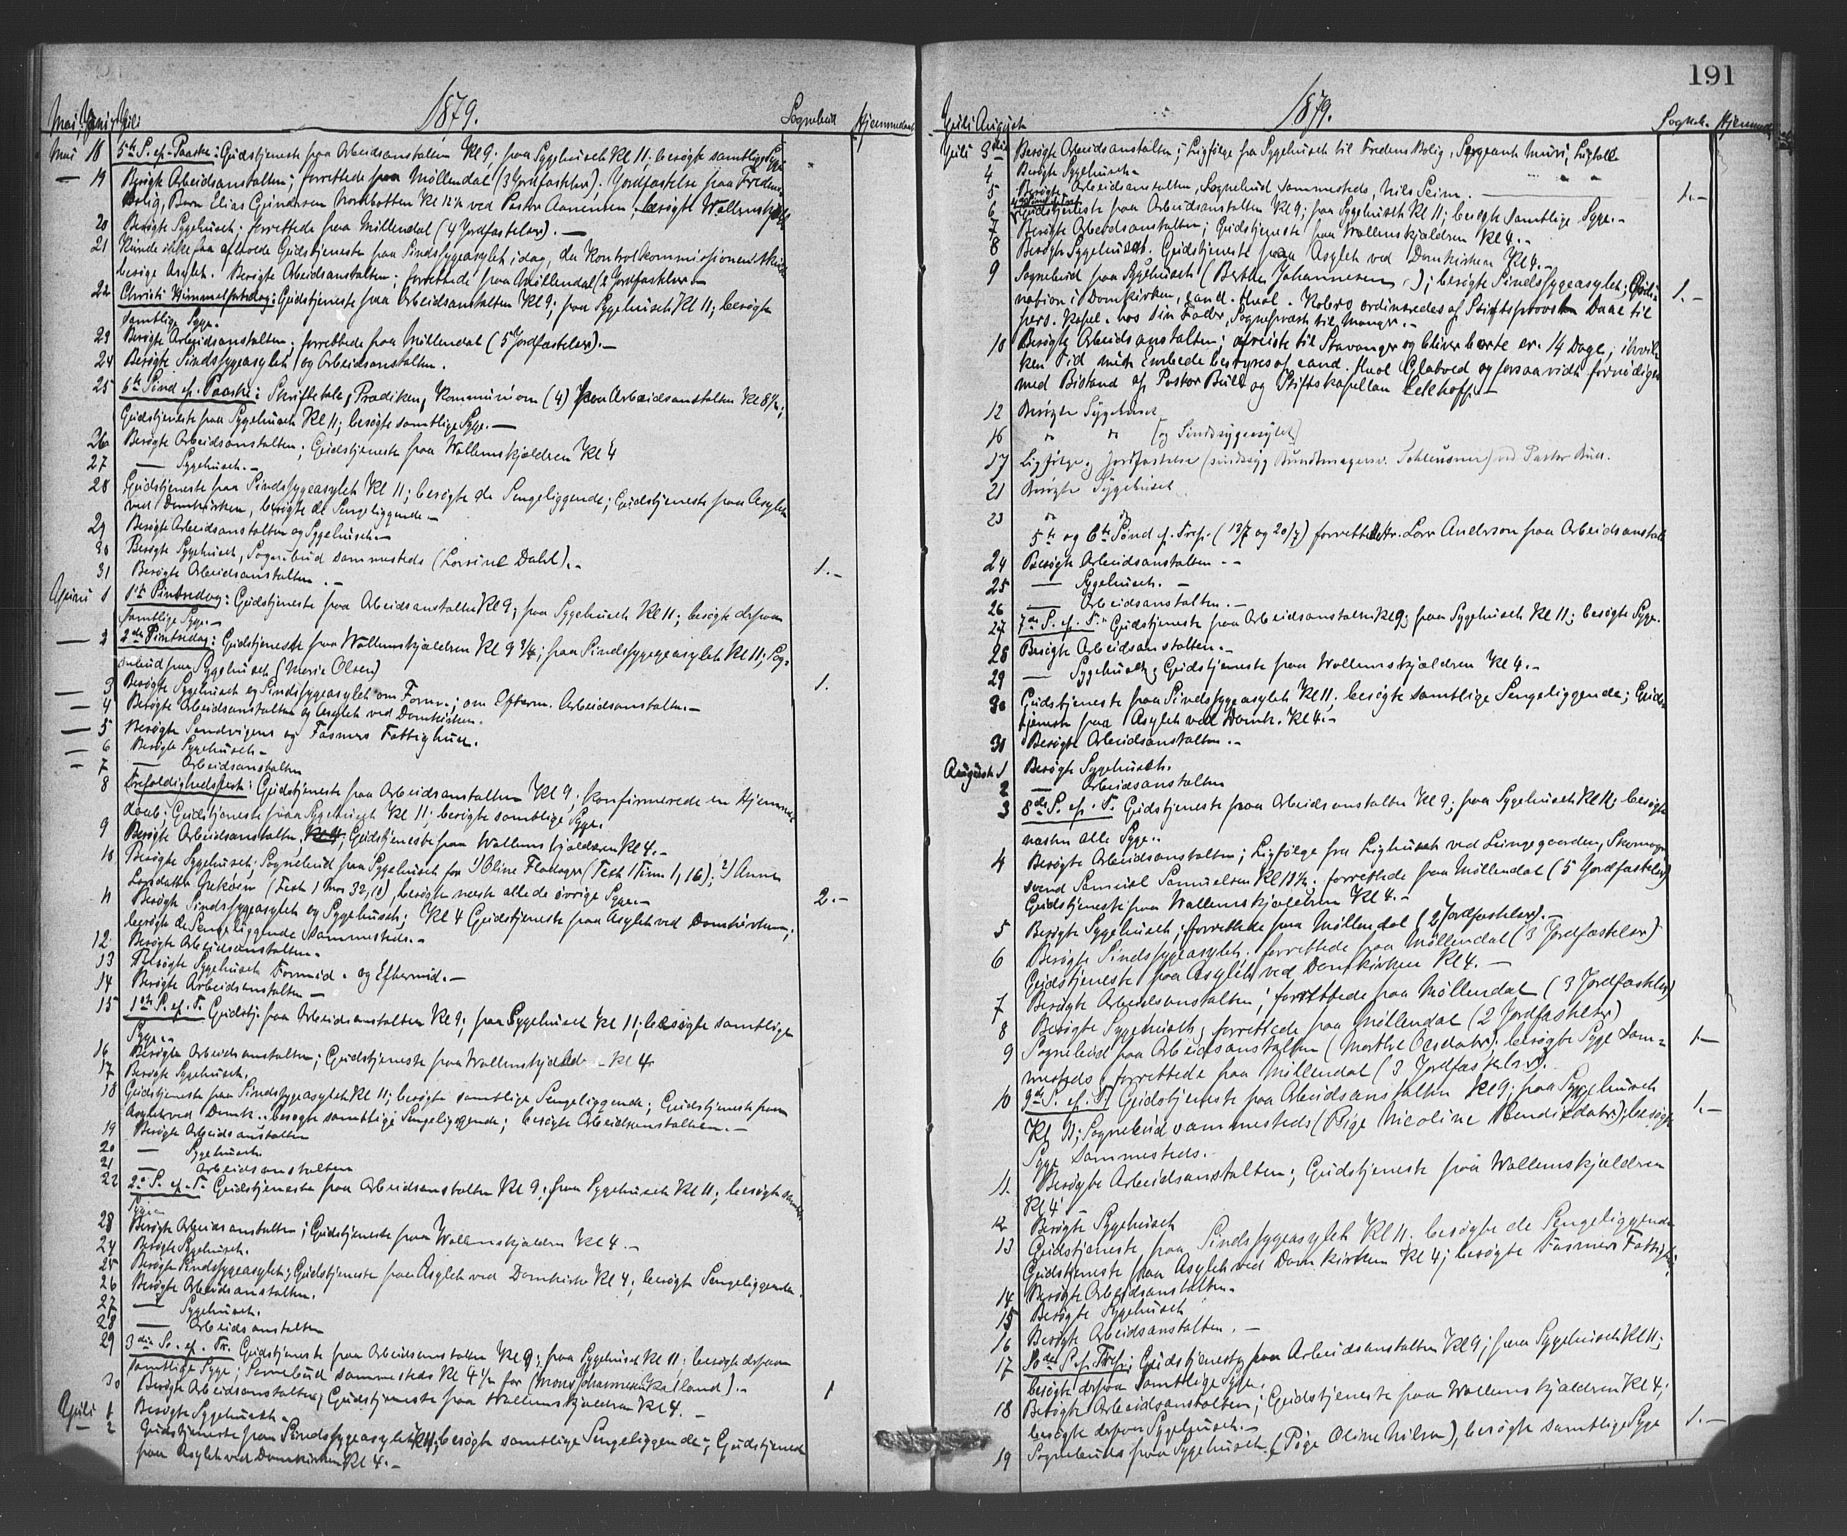 1879.
Mai Juni Juli
Sognebud
Mai 18 5te S. ef. Paaske: Gudstjeneste paa Arbeidsanstalten Kl 9. paa Sygehuset Kl 11. besøgte samtlige Syge
— 19 Besøgte Arbeidsanstalten; forrettede paa Møllendal (3 Jordfæstelser). Jordfæstelse paa Fredens
Bolig, Barn Elias Gundersen Kl 12½ ved Pastor Aanensen, besøgte
20 Besøgte Sygehuset; forrettede paa Møllendal (4 Jordfæstelser). —
21 Kunde ikke faa afholde Gudstjeneste paa Sindssygeasylet idag, da Kontrolkommissionen skulde
besøge Asylet. Besøgte Arbeidsanstalten; forrettede paa Møllendal (2 Jordfæstelser —
22 Christi Himmelfartsdag: Gudstjeneste paa Arbeidsanstalten Kl 9; paa Sygehuset Kl 11; besøgte
samtlige Syge.
23 Besøgte Arbeidsanstalten; forrettede paa Møllendal (5 Jordfæstelser). —
24 Besøgte Sindssygeasylet og Arbeidsanstalten.
25 6te Sønd ef. Paaske: Skriftetale, Prædiken, Kommunion (4) paa Arbeidsanstalten Kl 8½;
Gudstjeneste paa Sygehuset Kl 11; besøgte samtlige Syge. —
26 Besøgte Arbeidsanstalten; Gudstjeneste paa Wollenskjældren Kl 4
27 — Sygehuset. —
28 Gudstjeneste paa Sindssygeasylet Kl 11; besøgte de Sengeliggende; Gudstjeneste paa Asylet
ved Domkirken, besøgte de Sengeliggende —
29 Besøgte Arbeidsanstalten og Sygehuset. —
30 Besøgte Sygehuset, Sognebud sammesteds (Lorsine Dahl). — 1. —
31 Besøgte Arbeidsanstalten. —
Juni 1 1ste Pintsedag: Gudstjeneste paa Arbeidsanstalten Kl 9; paa Sygehuset Kl 11; besøgte derpaa
samtlige Syge. —
— 2 2den Pintsedag: Gudstjeneste paa Wollenskjældren Kl 9¾; paa Sindssygeasylet Kl 11; Sog-
nebud paa Sygehuset (Marie Olsen) 1.
— 3 Besøgte Sygehuset og Sindssygeasylet om Form.; om Efterm. Arbeidsanstalten. —
— 4 Besøgte Arbeidsanstalten og Asylet ved Domkirken.
— 5 Besøgte Sandvigens og Fasmers Fattighus.
— 6 Besøgte Sygehuset —
— 7 — Arbeidsanstalten
8 Trefoldighedsfest: Gudstjeneste paa Arbeidsanstalten Kl 9, konfirmerede en Hjemme
døbt; Gudstjeneste paa Sygehuset Kl 11. besøgte samtlige Syge.
9 Besøgte Arbeidsanstalten; Gudstjeneste paa Wollenskjældren Kl 4. —
10 Besøgte Sygehuset; Sognebud paa Sygehuset for 1) Oline (Text 1 Tim 1, 16); 2) Anne
Larsdatter (Text 1 Mos 32, 10), besøgte næsten alle de øvrige Syge. — 2. —
11 Besøgte Sindssygeasylet og Sygehuset; Kl 4 Gudstjeneste paa Asylet ved Domkirken;
besøgte de Sengeliggende sammesteds. —
12. Besøgte Arbeidsanstalten. —
13 Besøgte Sygehuset Formid. og Eftermid. —
14 Besøgte Arbeidsanstalten —
15 1ste S. ef. T. Gudstj. paa Arbeidsanstalten Kl 9; paa Sygehuset Kl 11; besøgte samtlige
Syge. —
16 Besøgte Arbeidsanstalten; Gudstjeneste paa Wollenskjældren Kl 4
17 Besøgte Sygehuset.
18 Gudstjeneste paa Sindssygeasylet Kl 11; besøgte samtlige Sengeliggende; Gudstjeneste paa
Asylet ved Domk.. besøgte samtlige Sengeliggende; besøgte Arbeidsanstalten. —
19 Besøgte Arbeidsanstalten
20 — Sygehuset
21 — Arbeidsanstalten
22 2. S. ef. T. Gudstjeneste paa Arbeidsanstalten Kl 9; paa Sygehuset Kl 11; besøgte samtlige
Syge —
23 Besøgte Arbeidsanstalten; Gudstjeneste paa Wollenskjældren Kl 4. —
24 Besøgte Sygehuset.
25 Besøgte Sindssygeasylet; Gudstjeneste paa Asylet ved Domkirke Kl 4; besøgte Sengeliggende.
26 Besøgte Arbeidsanstalten.
27 — Sygehuset.
28 — Arbeidsanstalten
29 3die S. ef. Tr. Gudstjeneste paa Arbeidsanstalten Kl 9; paa Sygehuset Kl 11; besøgte derpaa
samtlige Syge; Sognebud sammesteds Kl 4½ for (Mons Johannesen). — 1
30 Besøgte Arbeidsanstalten, Gudstjeneste paa Wollenskjældren Kl 4. —
Juli 1 Besøgte Sygehuset. —
— 2 Gudstjeneste paa Sindssygeasylet Kl 11; besøgte samtlige Sengeliggende; Gudstjeneste
paa Asylet ved Domkirken Kl 4. —
191
1879.
Juli August
Sogneb.
Juli 3die Besøgte Arbeidsanstalten; Ligfølge fra Sygehuset til Fredens Bolig, Sergeant
4 Besøgte Sygehuset. —
5 Besøgte Arbeidsanstalten, Sognebud sammesteds, Nils Seim. 1. —
6 Gudstjeneste paa Arbeidsanstalten Kl 9; paa Sygehuset Kl 11; besøgte samtlige Syge. —
7 Besøgte Arbeidsanstalten; Gudstjeneste paa Wollenskjældren Kl 4. —
8 Besøgte Sygehuset. Gudstjeneste paa Asylet ved Domkirken Kl 4. —
9 Sognebud paa Sygehuset (Berthe Johannesen); besøgte Sindssygeasylet; Ordi-
nation i Domkirken, cand. theol. Koberg ordineredes af Stiftsprovsten Daae til 1. —
pers. Kapel. hos sin Fader, Sognepræst til Manger. —
10 Besøgte Arbeidsanstalten; afreiste til Stavanger og bliver borte ca. 14 Dage, i hvil-
ken Tid mit Embede bestyres af cand. theol og forsaavidt fornødiges
med Bistand af Pastor Bull og Stiftskapellan Eckhoff. —
12 Besøgte Sygehuset
16 " " [og Sindssygeasylet]
17 Ligfølge og Jordfæstelse (sindssyg Bundtmagersv. Schleusner) ved Pastor Bull.
21 Besøgte Sygehuset
23 " "
5te og 6te Sønd ef. Tref. (13/7 og 20/7) forrettede Hr. Andersen paa Arbeidsanstalt
24 Besøgte Arbeidsanstalten. —
25 — Sygehuset. —
26 — Arbeidsanstalten. —
27 7de S. ef. T. Gudstjeneste paa Arbeidsanstalten Kl 9; paa Sygehuset Kl 11; besøgte Syge.
28 Besøgte Arbeidsanstalten. —
29 — Sygehuset; Gudstjeneste paa Wollenskjældren Kl 4. —
30 Gudstjeneste paa Sindssygeasylet Kl 11; besøgte samtlige Sengeliggende; Guds-
tjeneste paa Asylet ved Domk. Kl 4. —
31 Besøgte Arbeidsanstalten. —
August 1 Besøgte Sygehuset.
2 — Arbeidsanstalten
3 8de S. ef. T. Gudstjeneste paa Arbeidsanstalten Kl 9; paa Sygehuset Kl 11. besøgte
næsten alle Syge..
4 Besøgte Arbeidsanstalten; Ligfølge fra Lighuset ved Lungegaarden, Skomager
svend Samuel Samuelsen Kl 11½; forrettede paa Møllendal (5 Jordfæstelser)
Gudstjeneste paa Wollenskjældren Kl 4. —
5 Besøgte Sygehuset; forrettede paa Møllendal (2 Jordfæstelser). —
6 Besøgte Sindssygeasylet. forrettede paa Møllendal (3 Jordfæstelser)
Gudstjeneste paa Asylet ved Domkirken Kl 4. —
7 Besøgte Arbeidsanstalten; forrettede paa Møllendal (3 Jordfæstelser)
8 Besøgte Sygehuset; forrettede paa Møllendal (2 Jordfæstelser)
9 Sognebud paa Arbeidsanstalten (Marthe Olsdatr). besøgte Syge sam- 1. —
mesteds, forrettede paa Møllendal (3 Jordfæstelser).
10 9de S. ef. T. Gudstjeneste paa Arbeidsanstalten Kl 9; paa Sygehuset 1. —
Kl 11; Sognebud sammesteds (Pige Nicoline Bendixdatr), besøgte
Syge sammesteds. —
11. Besøgte Arbeidsanstalten; Gudstjeneste paa Wollenskjældren
Kl 4. —
12 Besøgte Sygehuset
13 Gudstjeneste paa Sindssygeasylet Kl 11. besøgte de Sengeliggende
Gudstjeneste paa Asylet ved Domkirken Kl 4; besøgte Fasmers Fattighus;
14 Besøgte Arbeidsanstalten. —
15 Besøgte Sygehuset
16 Besøgte Arbeidsanstalten. —
17 10de S. ef. Tref.: Gudstjeneste paa Arbeidsanstalten Kl 9; paa Sygehuset Kl 11;
besøgte derpaa samtlige Syge.
18 Besøgte Arbeidsanstalten; Gudstjeneste paa Wollenskjældren Kl 4;
besøgte derpaa Sygehuset. —
19 Sognebud paa Sygehuset (Pige Oline Nilsen), besøgte samtlige Syge 1. —